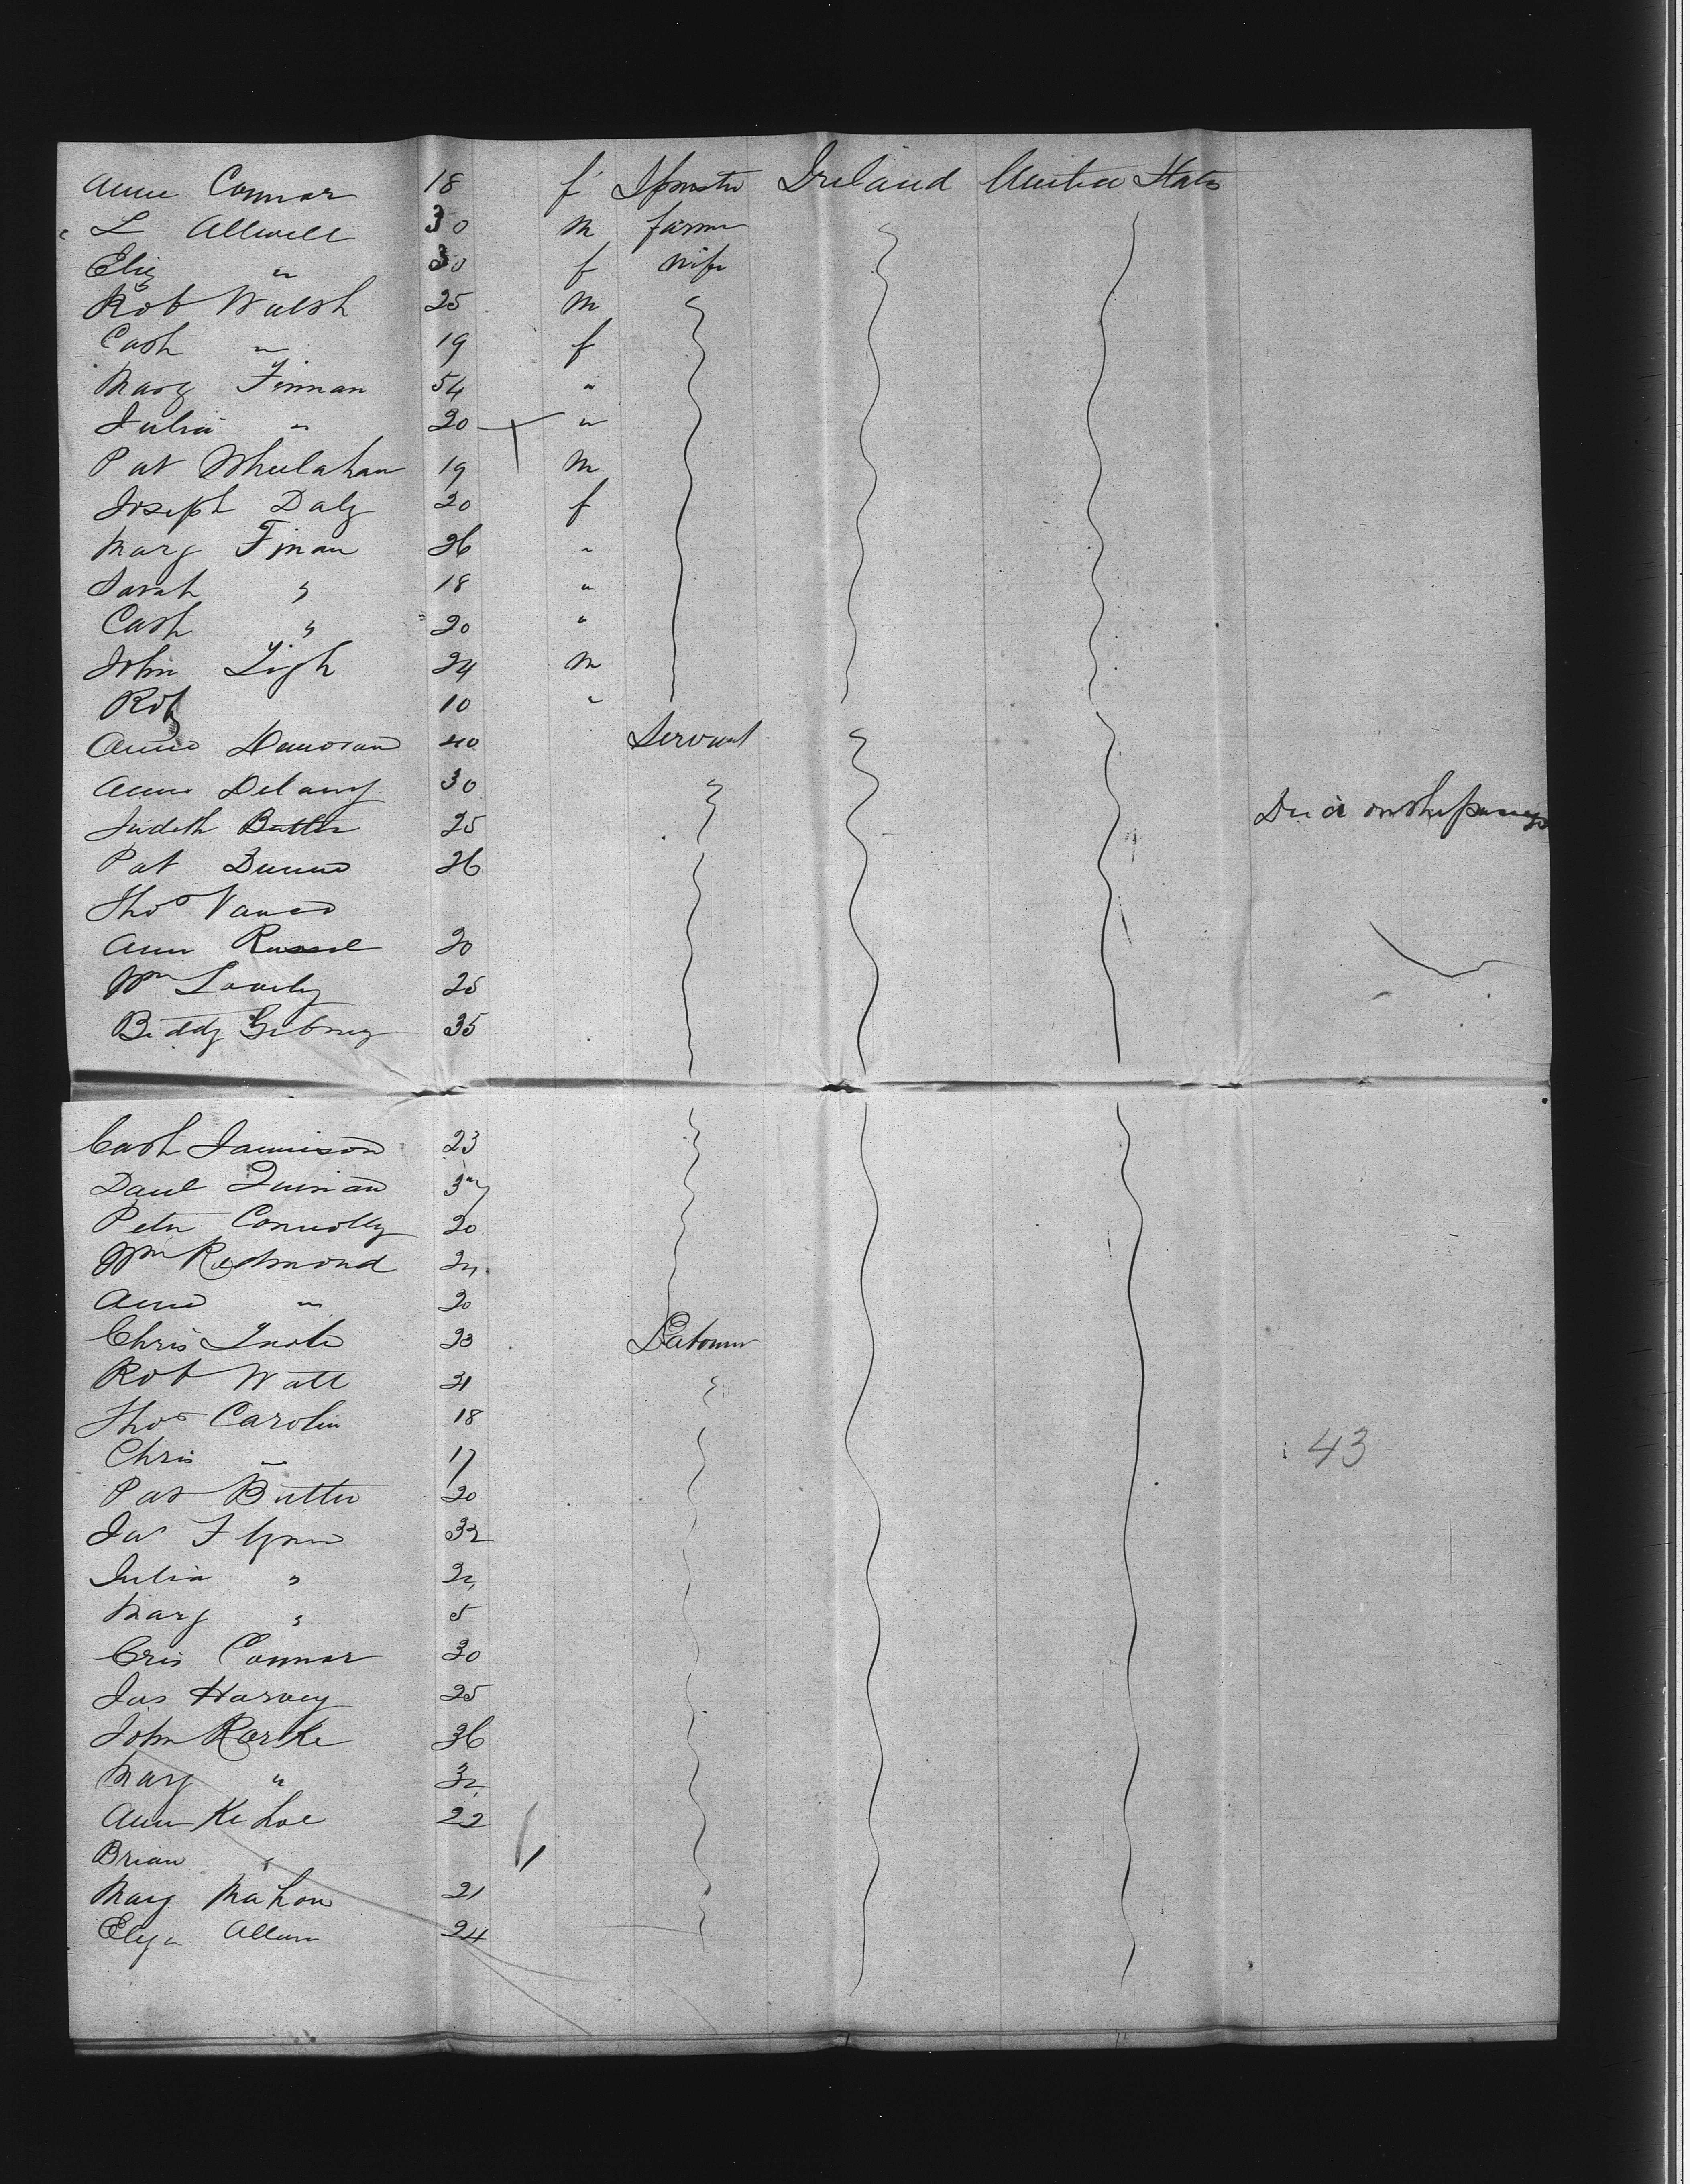 Anne Connor 18 f Spinster Ireland United States
L Allwell 30 m farmer
Eliz " 30 f wife
Rob Walsh 25 m
Cath " 19 f
Mary Finnan 54 "
Julia " 20 "
Pat Wheelahan 19 m
Joseph Daly 20 f
Mary Finan 26 "
Sarah " 18 "
Cath " 20 "
John Ligh 24 m
Rob 10 "
Anne Donovan 40 Servant
Anne Delany 30
Judith Butler 25 Died on the passage
Pat Dunne 26
Thos Vance
Ann Russel 20
Wm Lovely 25
Biddy Gibney 35
Cath Jamison 23
Danl
Peter Connolly 20
Wm Redmond
Anne " 20
Chris 23 Labourer
Rob Wall 21
Thos Carolin 18
Chris " 17 43
Pat Butler 20
Jas Flynn 32
Julia "
Mary " 5
Cris Connor 30
Jas Harvey 25
John Rorke 36
Mary " 32
Ann Kehoe 22
Brian "
Mary Mahon 21
Eliza Allen 24